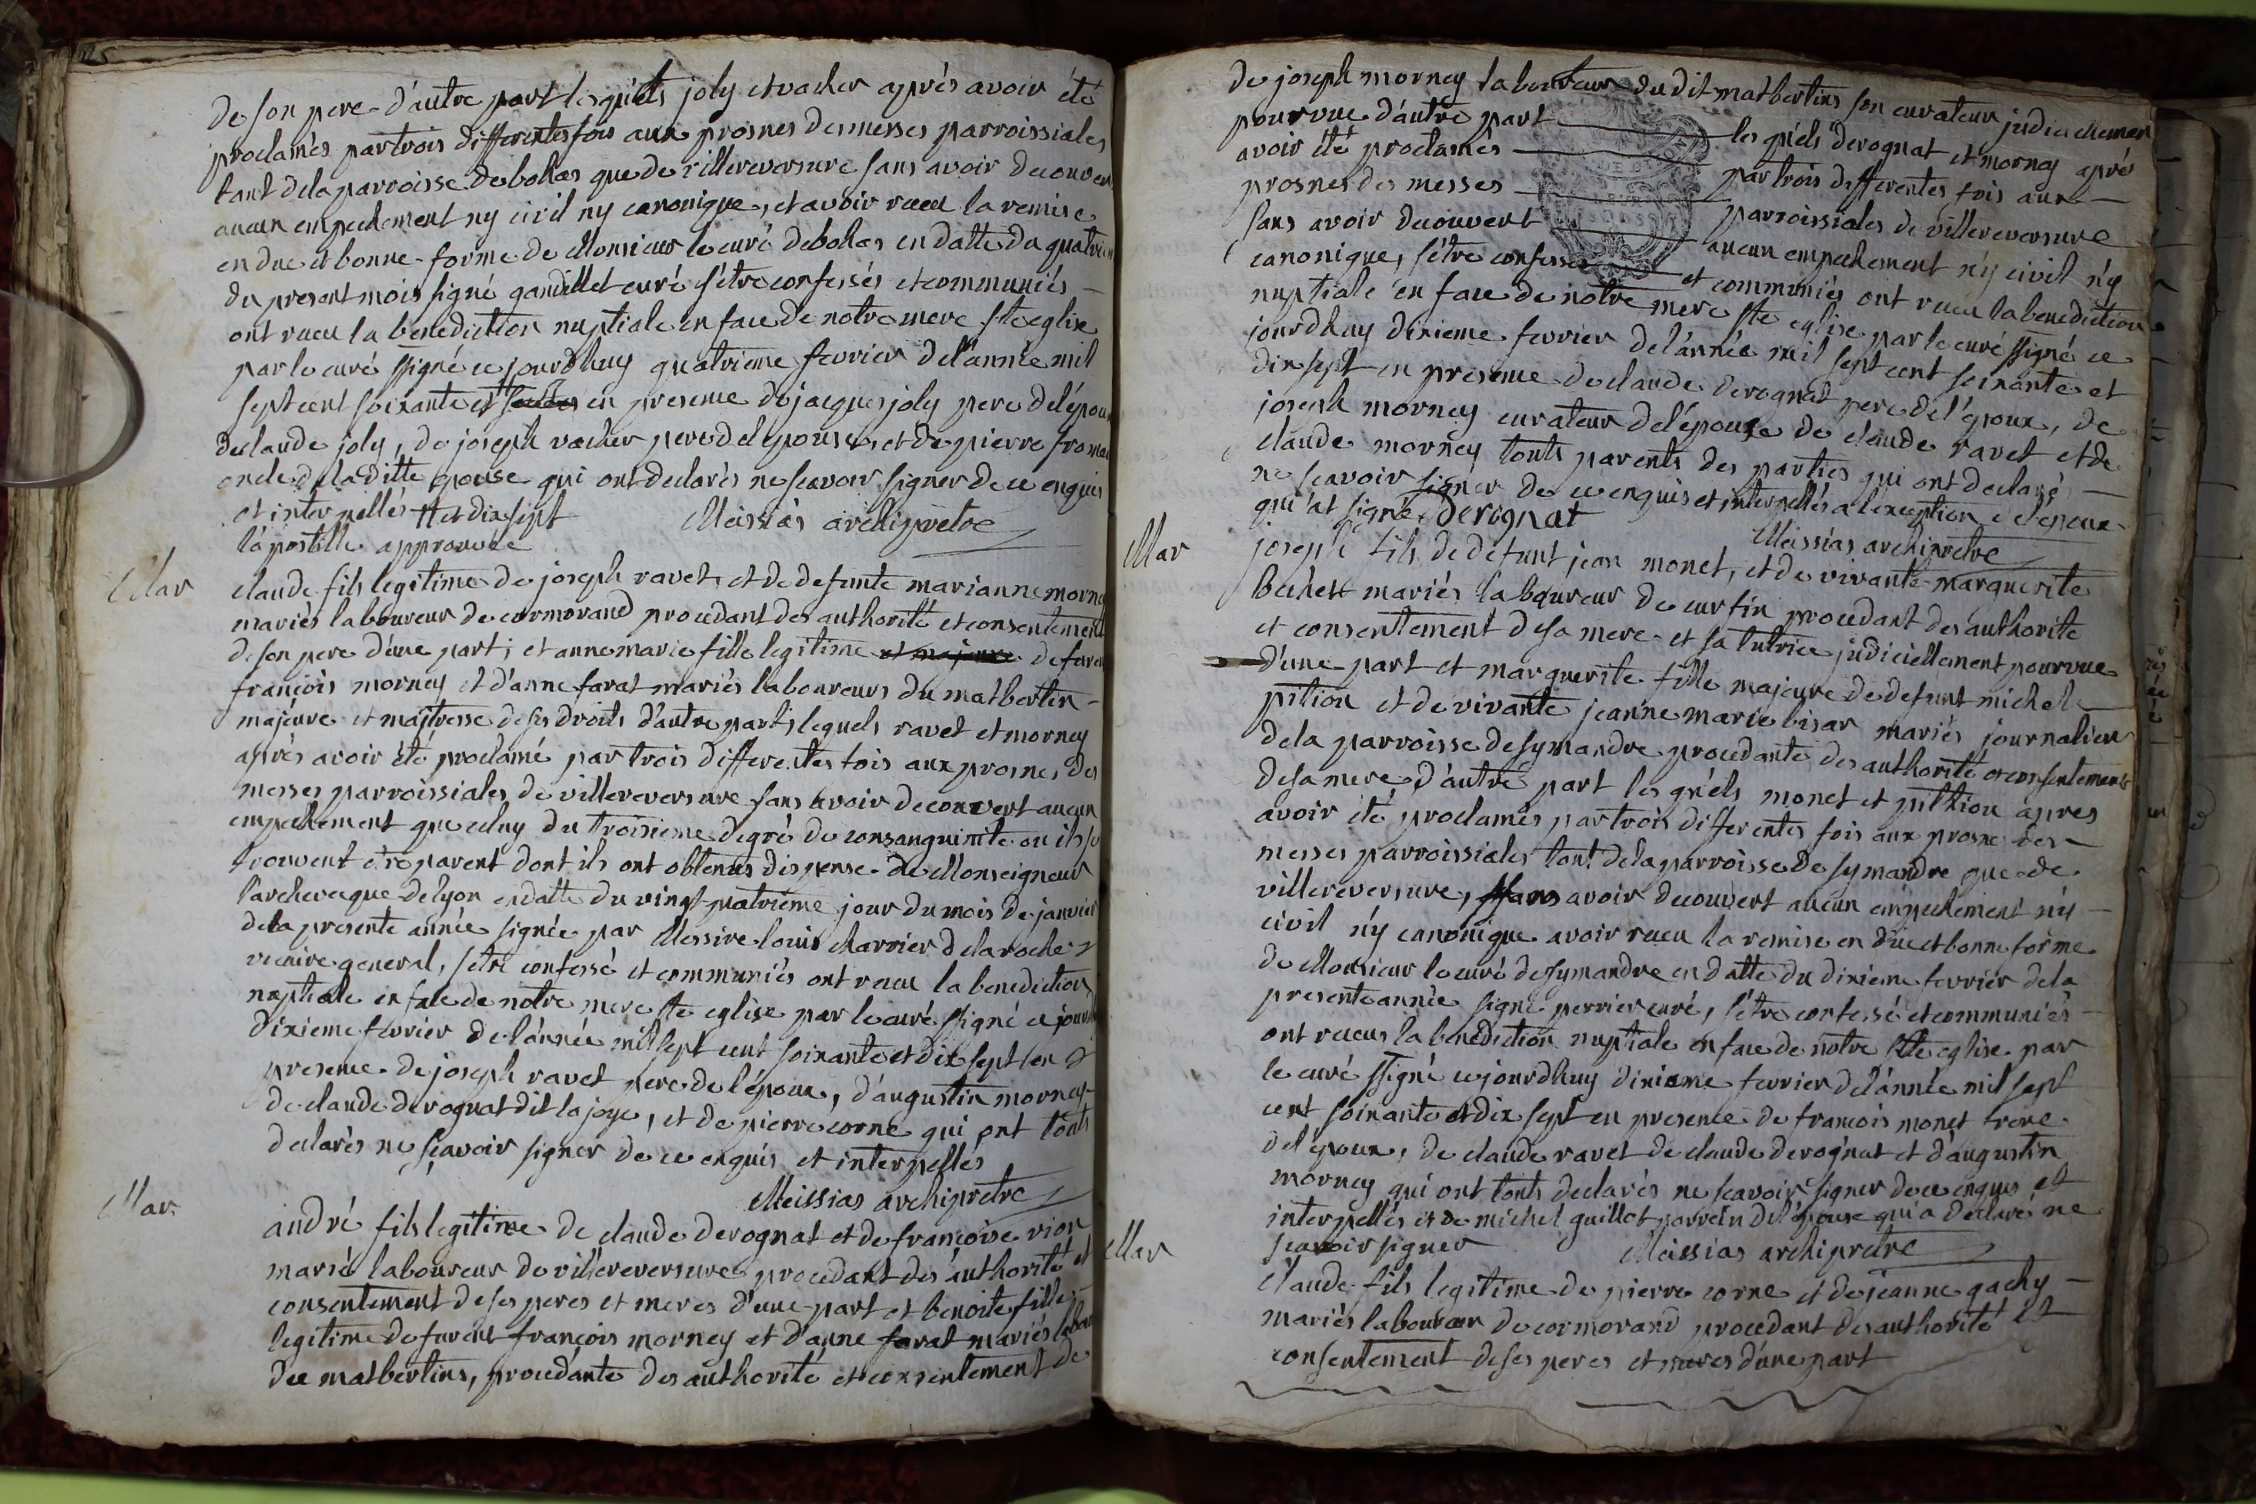 de son pere d'autre part lesquels joly et vacher aprés avoir été
proclamés par trois differentes fois aux prosnes des messes parroissiales
tant de la parroisse de bohas que de villereversure sans avoir decouvert
aucun empechement ny civil ny canonique, et avoir receu la remise
en due et bonne forme de Monsieur le curé de bohas en datte du quatrieme
du present mois signé gandillet curé s'étre confessés et communiés
ont receu la benediction nuptiale en face de notre mere ste eglise
par le curé ssigné ce jourdhuy quatrieme fevrier de l'année mil
sept cent soixante et en presence de jacques joly pere de l'époux
de claude joly, de joseph vacher pere de l'epouse, et de pierre
oncle de la ditte epouse qui ont declarés ne sçavoir signer de ce enquis
et interpellés # et dix sept Meissias archipretre
l'apostille approuvée
Mar
claude fils legitime de joseph ravet et de defunte marianne morney
mariés laboureur de cormorand procedant des authorité et consentement
de son pere d'une part; et anne marie fille legitime et majeure de feu
françois morney et d'anne farat mariés laboureurs du matbertin
majeure et maitresse de ses droits d'autre part, lequels ravet et morney
aprés avoir été proclamé par trois differentes fois aux prosnes des
messes parroissiales de villereversure sans avoir decouvert aucun
empechement que celuy du troisieme degré de consanguinité ou ils se
trouvent etre parent dont ils ont obtenus dispense de Monseigneur
l'archeveque de lyon en datte du vingt quatrieme jour du mois de janvier
de la presente année signée par Messire louis charrier de la roche
vicaire general, s'etre confessé et communiés ont receu la benediction
nuptiale en face de notre mere ste eglise par le curé ssigné ce jourdhuy
dixieme fevrier de l'année mil sept cent soixante et dix sept en
presence de joseph ravet pere de l'époux, d'augustin morney
de claude derognat dit la joye, et de pierre corne qui ont touts
declarés ne sçavoir signer de ce enquis et interpellés
Meissias archipretre
Mar
andré fils legitime de claude derognat et de françoise vion
marié laboureur de villereversure procedant des authorité et
consentement de ses peres et meres d'une part et benoite fille
legitime de feu françois morney et d'anne farat mariés
de matbertins, procedante des authorité et consentement de
de joseph morney laboureur du dit matbertins son curateur judiciellement
pourvue d'autre part les quels derognat et morney aprés
avoir été proclamés par trois differentes fois aux
prosnes des messes parroissiales de villereversure
sans avoir decouvert aucun empechement n'y civil n'y
canonique, s'étre confessés et communiés ont receu la benediction
nuptiale en face de notre mere ste eglise par le curé ssigné ce
jourdhuy dixieme fevrier de l'année mil sept cent soixante et
dix sept en presence de claude derognat pere de l'époux, de
joseph morney curateur de l'épouse de claude ravet et de
claude morney touts parents des parties qui ont declarés
ne scavoir signer de ce enquis et interpellés a l'exception de l'epoux
qui at signé. Derognat
Meissias archipretre
Mar
joseph fils de defunt jean monet, et de vivante marguerite
bechet mariés laboureur de curfin procedant des authorité
et consentement de sa mere et sa tutrice judiciellement pourvue
d'une part et marguerite fille majeure de defunt michel
pition et de vivante jeanne marie bisar mariés journalier
de la parroisse de symandre procedante des authorité et consentement
de sa mere d'autre part les quels monet et pition apres
avoir été proclamés par trois differentes fois aux prosne des
messes parroissiales tant de la parroisse de symandre que de
villereversure, sans avoir decouvert aucun empechement n'y
civil n'y canonique avoir receu la remise en due et bonne forme
de Monsieur le curé de symandre en datte du dixieme fevrier de la
presente année signé perrier curé, s'étre confessé et communiés
ont receus la benediction nuptiale en face de notre ste eglise par
le curé ssigné ce jourdhuy dixieme fevrier de l'année mil sept
cent soixante et dix sept en presence de francois monet frere
de l'epoux, de claude ravet de claude derognat et d'augustin
morney qui ont touts declarés ne scavoir signer de ce enquis et
interpellés et de michel guillot parrein de l'épouse qui a declaré ne
scavoir signer Meissias archipretre
Mar
claude fils legitime de pierre corne et de jeanne gachy
mariés laboureur de cormorand procedant des authorité et
consentement de ses peres et meres d'une part